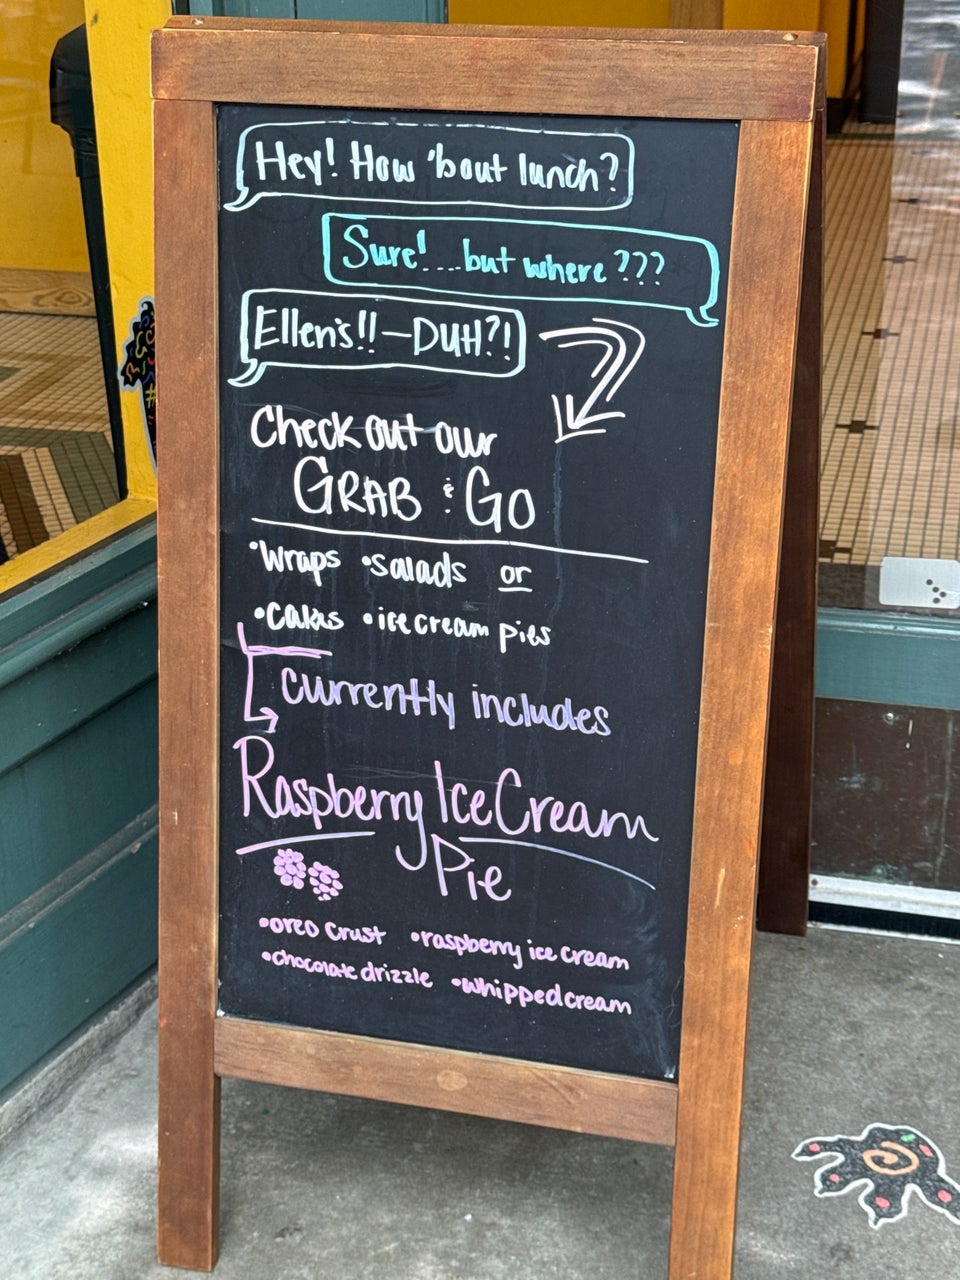 Hey! How 'bout lunch?
Sure!....but where???
Ellen's!!-DUH?!
Check out our
GRAB & GO
•wraps •salads or
•cakes •ice cream pies
currently includes
Raspberry Ice Cream
Pie
•oreo crust •raspberry ice cream
•chocolate drizzle •whipped cream